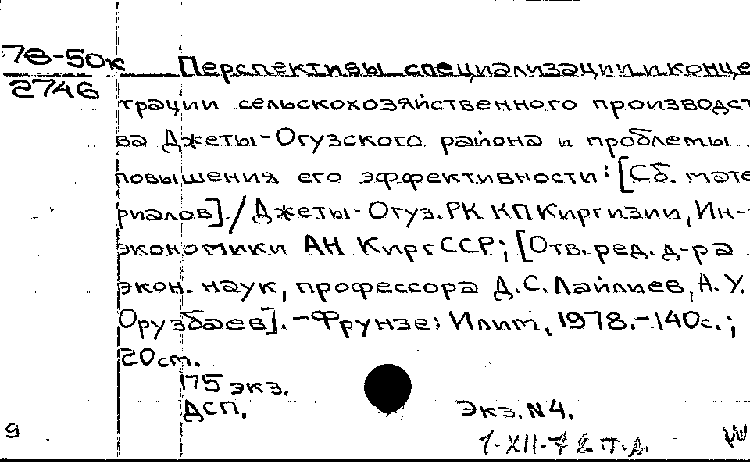 78-50к
2746
Перспективы специализации и конце
трации сельскохозяйственного производст
ва Джеты-Огузского района и проблемы
повышения его эффективности: [Сб. мате
риалов]./Джеты-Огуз.РК КП Киргизии, Ин-т
экономики АН КиргССР; [Отв.ред. д-ра
экон. наук, профессора Д.С.Лайлиев, А.У.
Орузбаев]. - Фрунзе: Илим, 1978.-140с.;
20см.
175 экз.
ДСП. Экз.N4.
9